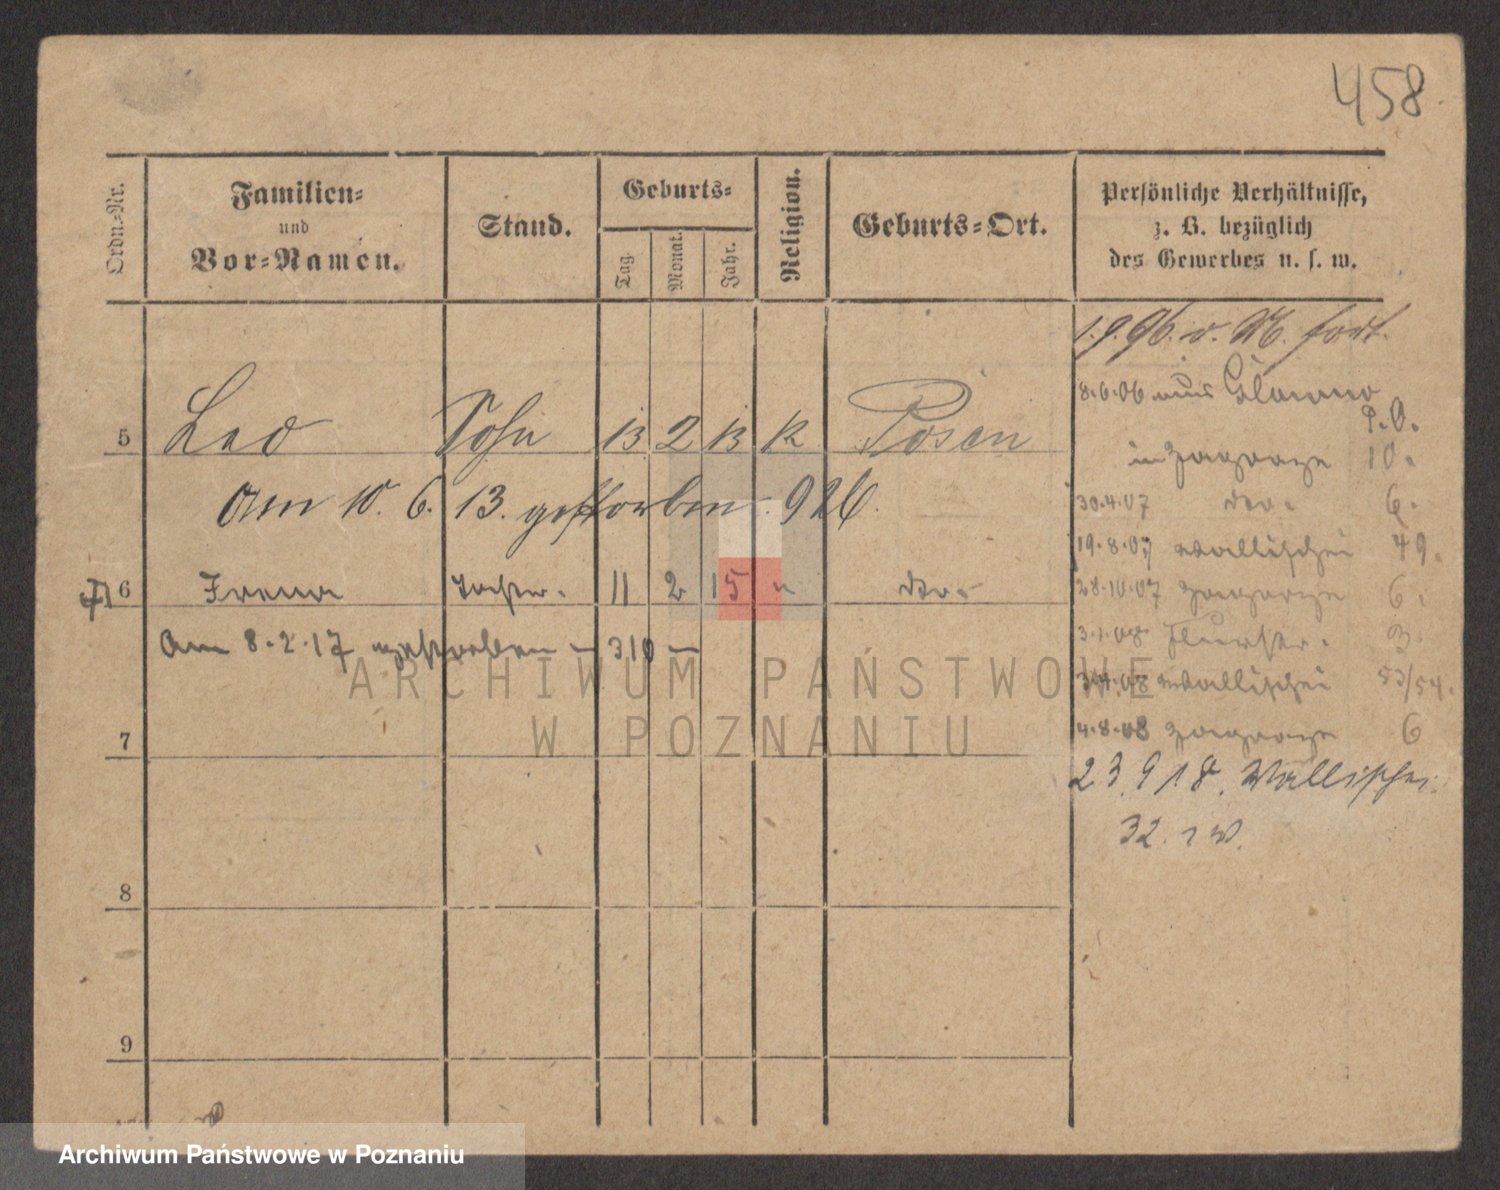 458
Ordn.-Nr.
Familien-
und
Vor-Namen.
Stand.
Geburts-
Tag.
Monat.
Jahr.
Religion.
Geburts-Ort.
Persönliche Verhältnisse,
z. B. bezüglich
des Gewerbes u. s. w.
1.9.96. v. M. fort.
8.6.06 aus Glowno
P.O.
5 Leo Sohn 13 2 13 k Posen
in Zagorze 10.
Am 10. 6. 13. gestorben. 926.
30.4.07 do. 6.
19.8.07 Wallischei 49.
6 Irena Tochter. 11 2 15 " do.
28.10.07 Zagorze 6.
Am 8.2.17 gestorben - 310 -
3.1.08 3.
Wallischei 53/54.
ARCHIWUM PAŃSTWOWE
W POZNANIU
7
4.8.08 Zagorze 6
23.9.18. Wallischei
32.
8
9
Archiwum Państwowe w Poznaniu